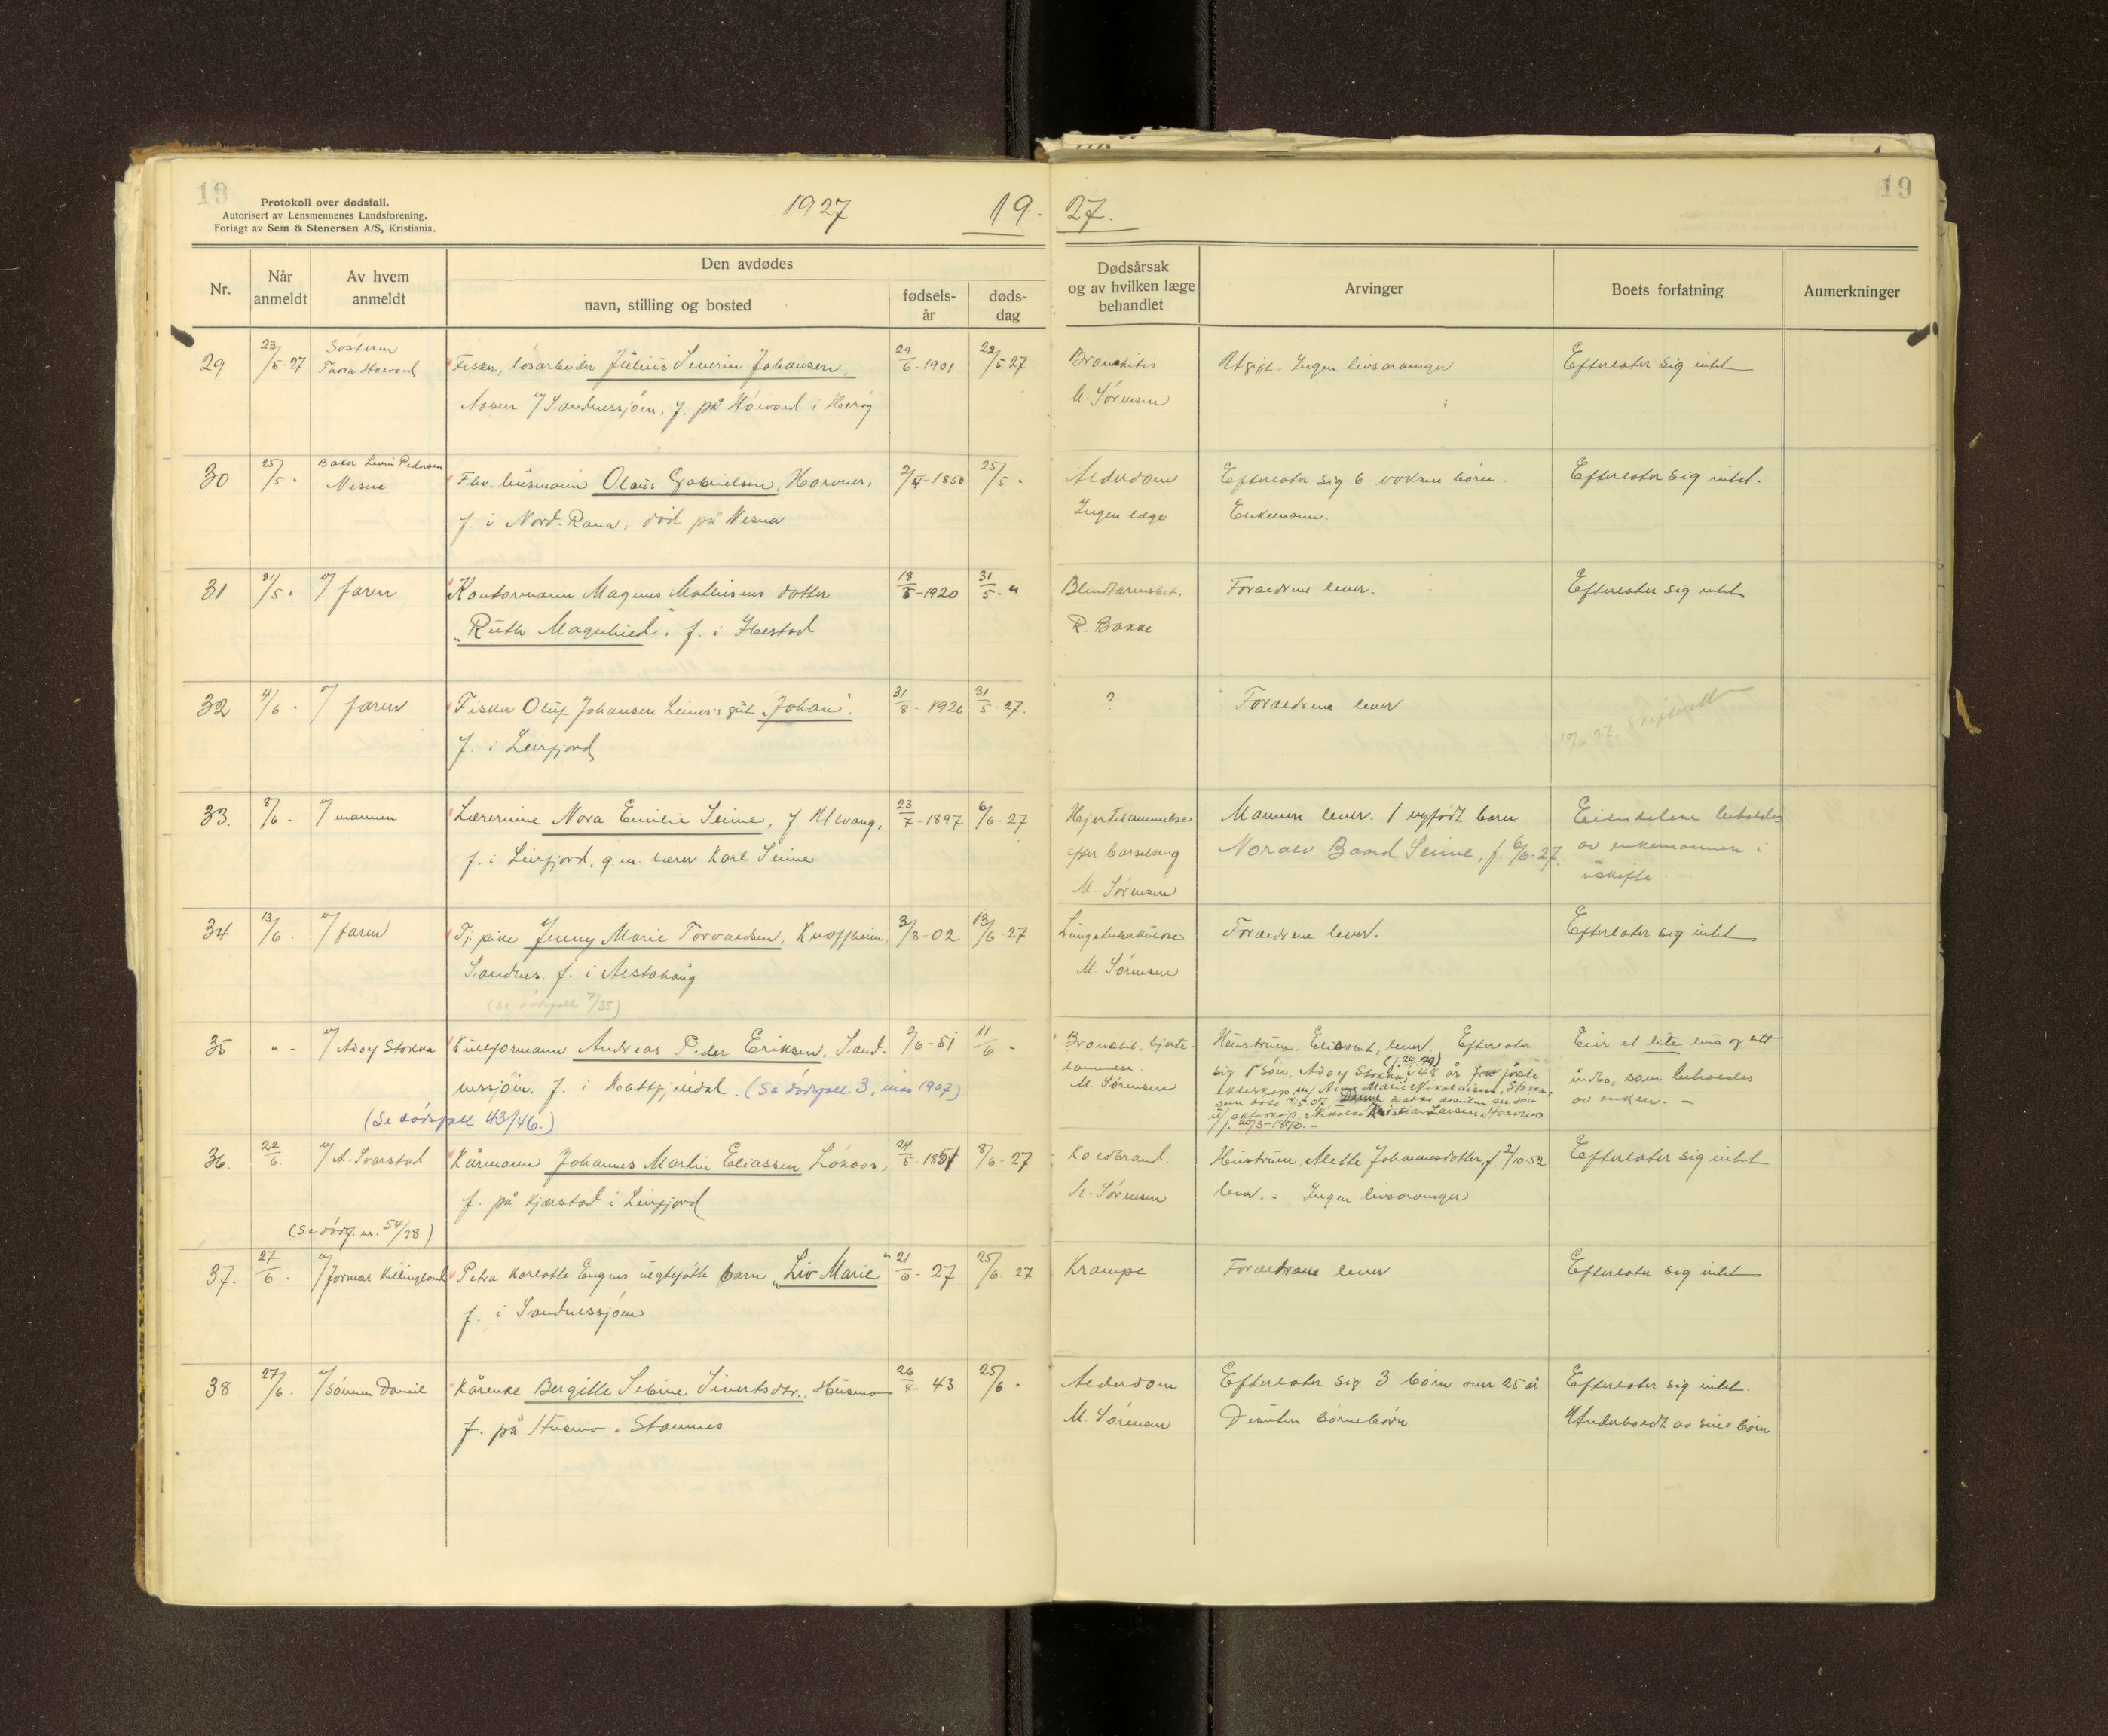 19
Protokoll over dødsfall.
Autorisert av Lensmennenes Landsforening.
Forlagt av Sem & Stenersen A/S, Kristiania.
1927
19-27.
19
Nr.
Når anmeldt
Av hvem anmeldt
Den avdødes
navn, stilling og bosted
fødsels-år
døds-dag
Dødsårsak og av hvilken læge behandlet
Arvinger
Boets forfatning
Anmerkninger
29 23/5-27 Søsteren Fisker, løsarbeider Julius Severin Johansen, 29/6-1901 22/5 27 Bronkitis Ugift. Ingen livsarvinger Efterlater sig intet
Aasen v/ Sandnessjøen, f. på i Herøy M. Sørensen
30 25/5 Levin Pedersen Fhv. husmann Olaus Gabrielsen, Horvnes, -1850 25/5 Alderdom Efterlater sig 6 voksne børn. Efterlater sig intet.
Nesna f. i Nord-Rana, død på Nesna Ingen læge Enkemann.
31 31/5 v/ faren Kontormann Magnus Mathisens datter 18/5-1920 31/5 " Blindtarmsbet. Forældrene lever. Efterlater sig intet
"Ruth Magnhild". f. i R. Bakke
32 4/6 v/ faren Fisker Oluf Johansen Leines gut "Johan". 31/8-1926 31/5-27. ? Forældrene lever
f. i Leirfjord 10/6 27.
33. 8/6 v/ mannen Lærerinne Nora Emilie Seine, f. Ulvang, 23/7-1897 6/6-27 Hjertelammelse Mannen lever. 1 nyfødt barn Eiendelene beholdes
f. i Leirfjord, g.m. lærer Karl Seine efter barselseng Baard Seine, f. 6/6-27. av enkemannen i
M. Sørensen uskifte.
34 13/6 v/ faren Tj. pike Jenny Marie Torvaldsen, 3/3-02 13/6-27 Lungetuberkulose Forældrene lever. Efterlater sig intet
Sandnes. f. i Alstahaug M. Sørensen
(Se dødsfall 7/35)
35 " - v/ Adolf Stokka Kullformann Andreas Peder Eriksen, Sand- /6-51 11/6 - Bronkit, hjerte- Hustruen, Elisabet, lever. Efterlater Eier et lite hus og litt
nessjøen. f. i Hattfjeldal. (Se dødsfall 3, 1907) lammelse. sig 1 søn, Adolf Stokka, 48 år fra første indbo, som beholdes
M. Sørensen ekteskap m/ Anne Marie Nikolaisen, Stokka, av enken. -
som døde 14/5-07. Denne hadde desuten en søn
(Se dødsfall 43/46.) u/ ekteskap. Nikolai Kristian Larsen, Horvnes
f. 20/3-1870. -
36. 22/6 v/ A. Svarstad Kårmann Johannes Martin Eliassen Løkaas, 24/5-1851 8/6-27 Koldbrand. Hustruen, Mette Johannesdotter, f 2/10 52 Efterlater sig intet
f. på Kjærstad i Leirfjord M. Sørensen lever. - Ingen livsarvinger
(Se dødsf. nr. 54/28)
37. 27/6 v/ Killingland Petra Karlotte Engens uegtefødte barn "Liv Marie" 21/6-27 25/6-27 Krampe Forældrene lever Efterlater sig intet
f. i Sandnessjøen
38 27/6 v/ sønnen Daniel Kårenke Bergitte Sebine Sivertsdtr., Husmo 26/4-43 25/6 - Alderdom Efterlater sig 3 børn over 25 år Efterlater sig intet.
f. på Husmo. Stamnes M. Sørensen Desuten børnebørn Underholdt av sine børn